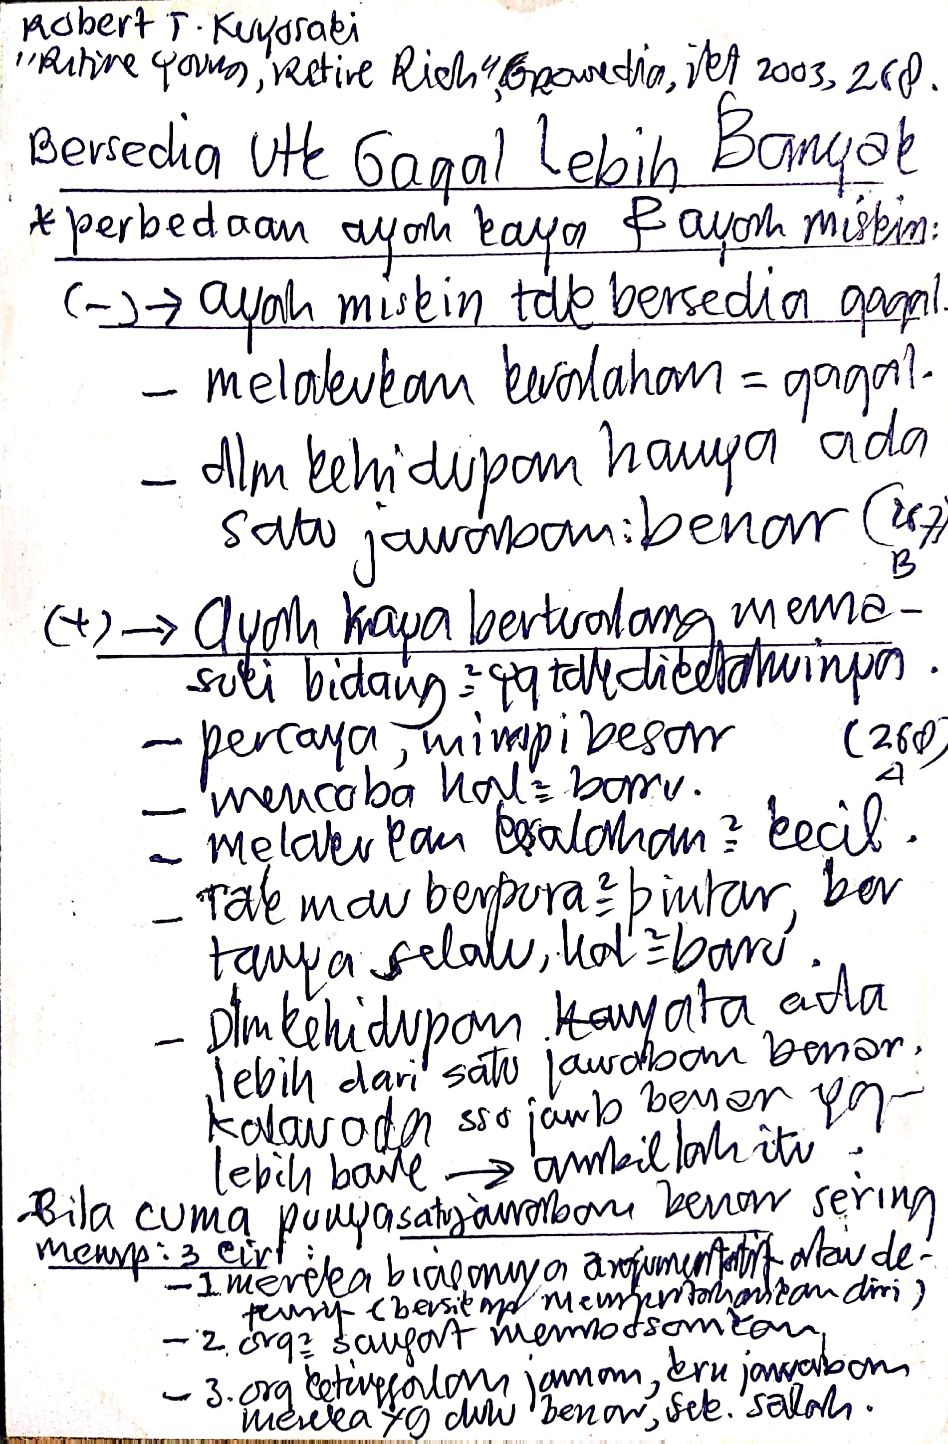 Robert T. Kuyosaki
"Retire Young, Retire Rich", Gramedia, jkt 2003, 268.
Bersedia Utk Gagal Lebih Banyak
* perbedaan ayah kaya & ayah miskin:
(-) → ayah miskin tdk bersedia gagal.
- melakukan kesalahan = gagal.
- dlm kehidupan hanya ada
satu jawaban: benar (267)
B
(+) → Ayah kaya bertualang mema-
suki bidang² yg tdk diketahuinya.
- percaya, mimpi besar (268)
A
- mencoba hal² baru.
- melakukan kesalahan² kecil.
- Tdk mau berpura² pintar, ber
tanya selalu, hal² baru.
- Dlm kehidupan nyata ada
lebih dari satu jawaban benar.
kalau ada sso jawb benar yg
lebih baik → ambillah itu.
Bila cuma punya satu jawaban benar sering
memp: 3 ciri:
- 1. mereka biasanya argumentatif atau de-
fensif (bersikap mempertahankan diri)
- 2. org² sangat membosankan
- 3. org ketinggalan jaman, krn jawaban
mereka yg dulu benar, sek. salah.